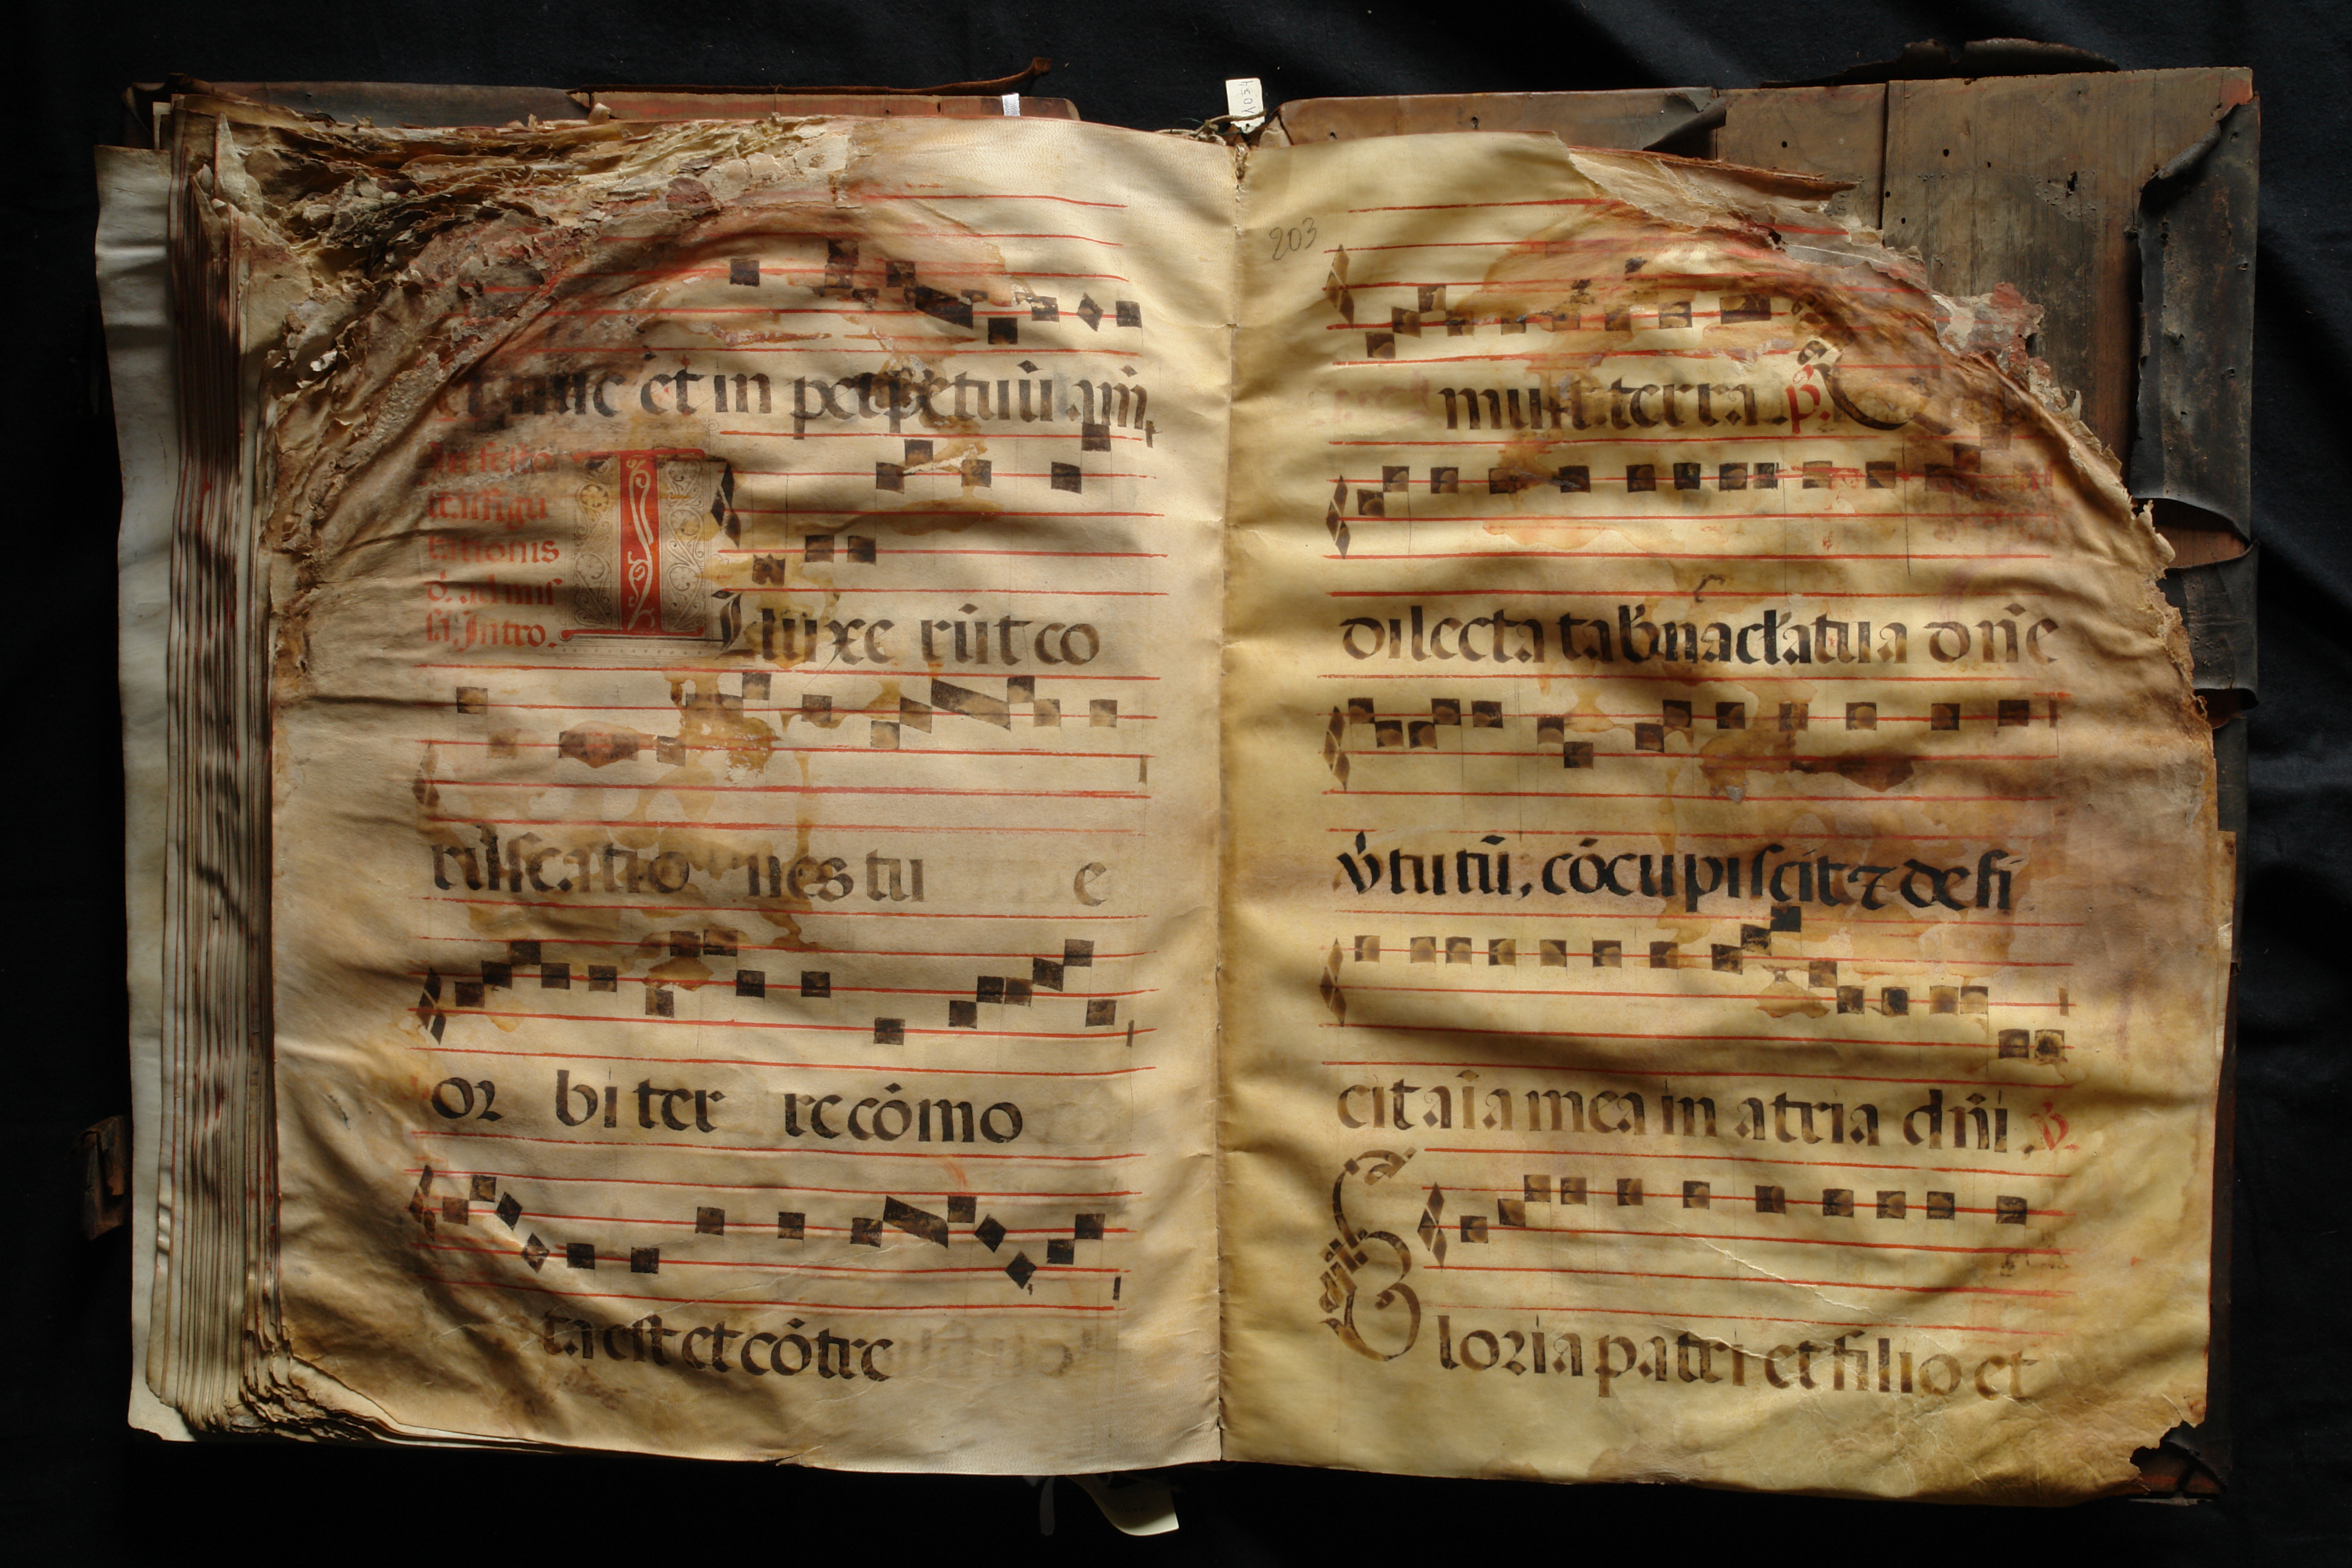 et nūc et in perpetuū. am̄.
In festo
trāsfigu
rationis
d. ad miss
sā. Intro.
Illuxe rūt co
ruscatio nes tu e
or bi ter re cōmo
ta est et cōtre
203
muit terra. p̄s.
dilecta tab̄nacl̄a tua dn̄e
v̄tutū, cōcupiscit ⁊ defi
cit aīa mea in atria dn̄i, v̄.
Gloria patri et filio et